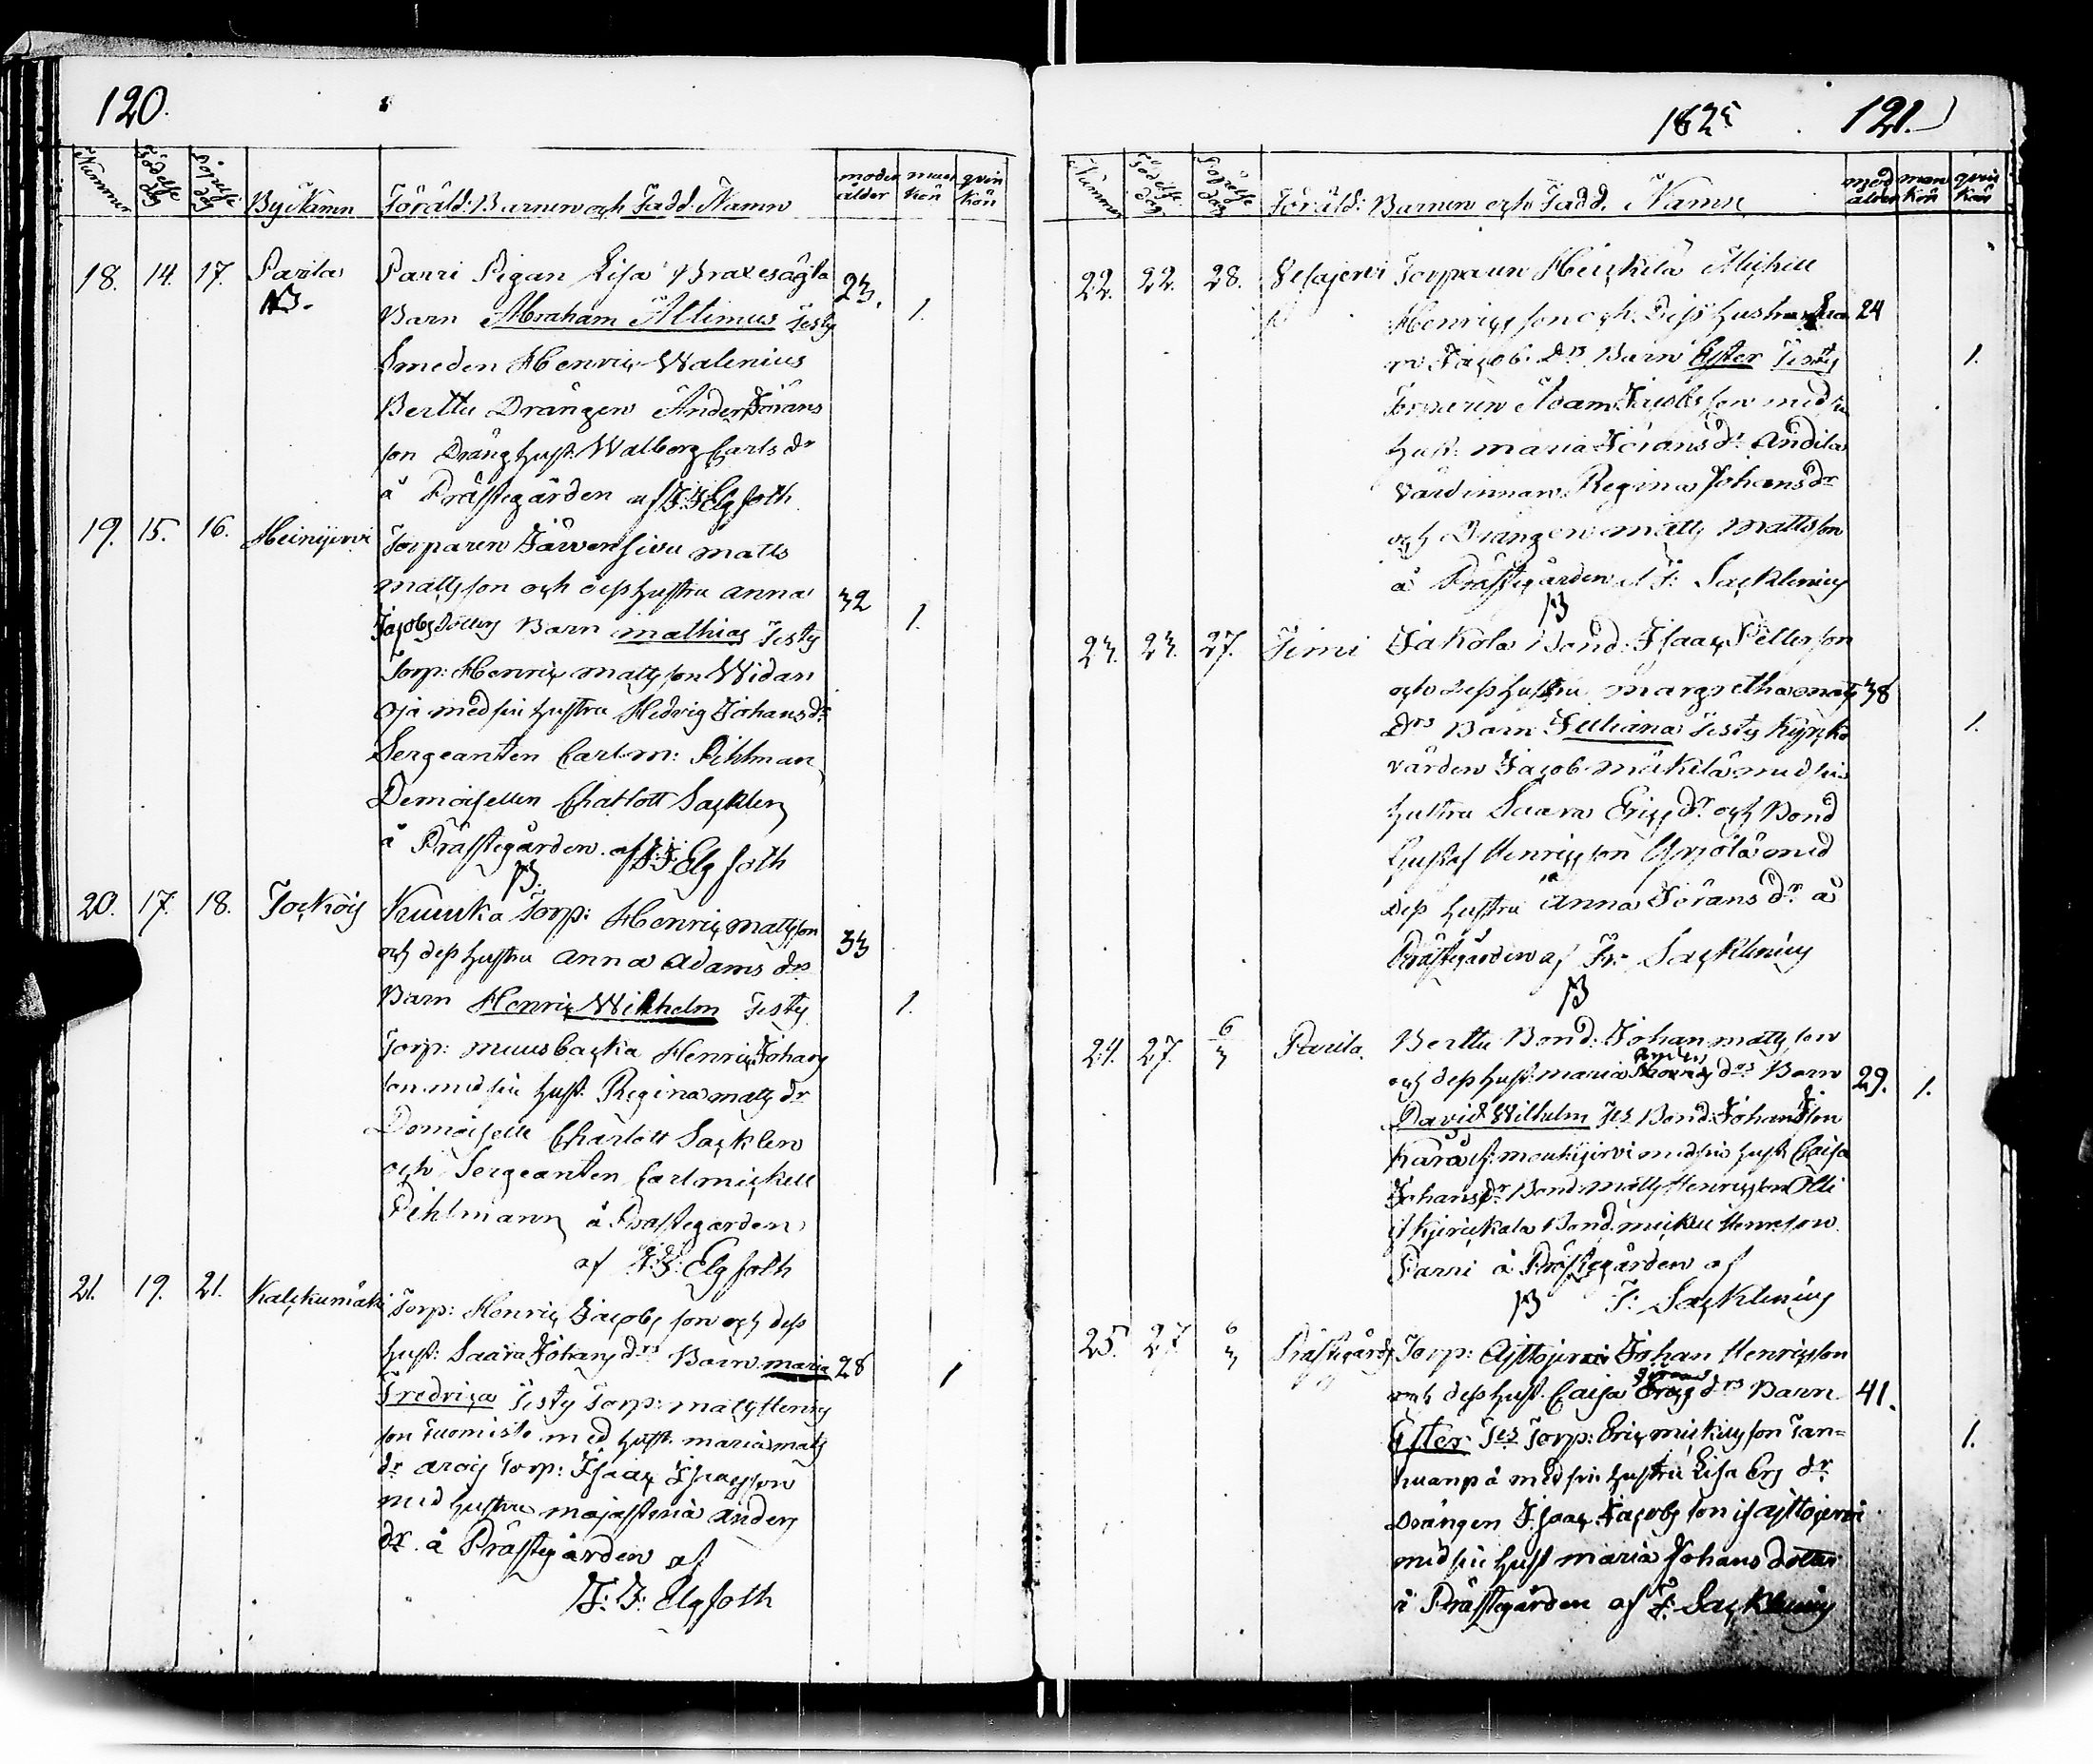 120.
Nummer Födelse dag Döpelse dag By Namn Föräld: Barnen och Fadd. Namn moder ålder man kön qvin kön
18. 14. 17. Parila Parri Pigan Lisa 23.
Barn Abraham Altimus Testes 1.
Smeden Henric Walenius
Berttu Drängen Anders Jörans
son Dräng hust. Walborg Carls dr
å Prästegården af J: J: Elgfoth
19. 15. 16. Heinijervi Torparen Järvensivu matts
mattsson och dess hustru anna 32
Jacobs dotters Barn mathias Testes 1.
Torp: Henric mattsson Widan
oja med sin hustru Hedvig Johans dr
Sergeanten Carl m: Pihlman
Demoisellen Charlott Sacklen
å Prästegården af J: J: Elgfoth
20. 17. 18. Torp: Henric mattsson
och dess hustru anna adams drs 33
Barn Henric Wilhelm Testes 1.
Torp: muusbacka Henric Johans
son med sin hust. Regina matts dr
Demoiselle Charlott Sacklen
och Sergeanten Carl mickell
Pihlmann å Prästegården
af J: J: Elgfoth
21. 19. 21. Torp: Henric Jacobsson och dess
hust: Saara Johans drs Barn maria 28 1
Fredrica Testes Torp: matts Henrics
son Tuomisto med hust. maria matts
dr Torp: Isaac Isacsson
med hustru maja stina anders
dr. å Prästegården af
J: J: Elgfoth
1825 121.
Nummer Födelse dag Döpelse dag Föräld: Barnen och Fadd. Namn mod ålder man kön qvin kön
22. 22. 28. Torparen Heickilä Michell
Henricsson och Dess hustru 24
Jacobs Drs Barn Ester Testes 1.
Torparen Adam Jacobsson med sin
hust: maria Jörans dr Andila
värdinnan Regina Johans dr
och Drängen matts mattsson
å Prästegården af F: Sacklenius
23. 23. 27. Timi Jakola Bond: Isaac Pettersson
och dess hustru margretha matts 38
Drs Barn Juliana Testes Kyrko 1.
värden Jacob mäkilä med sin
hustru Saara Erics dr och Bond
Gustaf Henricsson med
dess hustru Anna Jörans dr å
Prästegården af Fr: Sacklenius
24. 27. 6/3 Parila. Berttu Bond: Johan mattsson
och dess hust: maria drs Barn 29. 1.
David Wilhelm Tes Bond: Johan
moukijervi med sin hust Caisa
Johans dr Bond: matts Henricsson Olli
Bond:
Parri å Prästegården af
F: Sacklenius
25. 27 6/3 Prästegårds Torp: Johan Henricsson
och dess hust. Caisa drs Barn 41.
Ester Tes Torp: Eric mickelsson Tan= 1.
huanpä med sin hustru Lisa Ers dr
Drängen Isaac Jacobsson
med sin hust maria Johans dotter
å Prästegården af F: Sacklenius